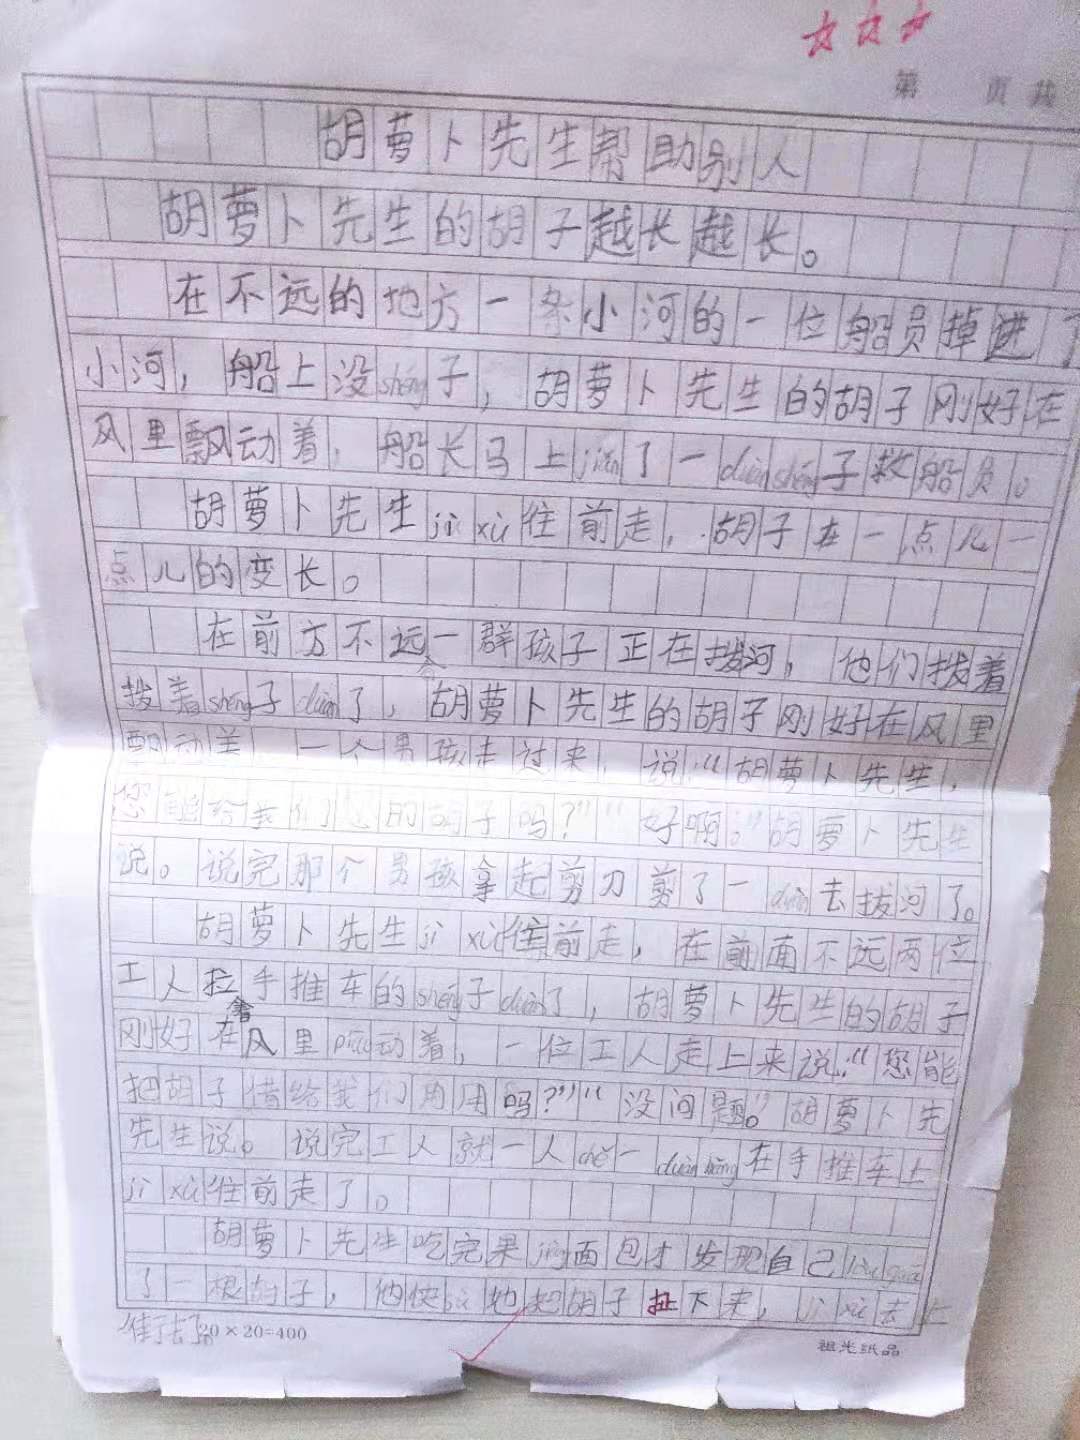 第 页 共
胡萝卜先生帮助别人
胡萝卜先生的胡子越长越长。
在不远的地方一条小河的一位船员掉进了
小河，船上没shéng子，胡萝卜先生的胡子刚好在
风里飘动着，船长马上jiǎn了一duànshéng子救船员。
胡萝卜先生jì xù往前走，胡子在一点儿一
点儿的变长。
在前方不远一群孩子正在拨河，他们拨着
拨着shéng子duàn了，胡萝卜先生的胡子刚好在风里
飘动着，一个男孩走过来，说：“胡萝卜先生，
您能给我们您的胡子吗？”“好啊。”胡萝卜先生
说。说完那个男孩拿起剪刀剪了一duàn去拔河了。
胡萝卜先生jì xù往前走，在前面不远两位
工人拉手推车的shéng子duàn了，胡萝卜先生的胡子
刚好在风里piāo动着，一位工人走上来说：“您能
把胡子借给我们用用吗？”“没问题。”胡萝卜先
先生说。说完工人就一人chě一duànshéng在手推车上
jì xù往前走了。
胡萝卜先生吃完果jiàng面包才发现自己
了一根胡子，他快 地把胡子扯下来，jì xù去上
20×20=400
祖光纸品